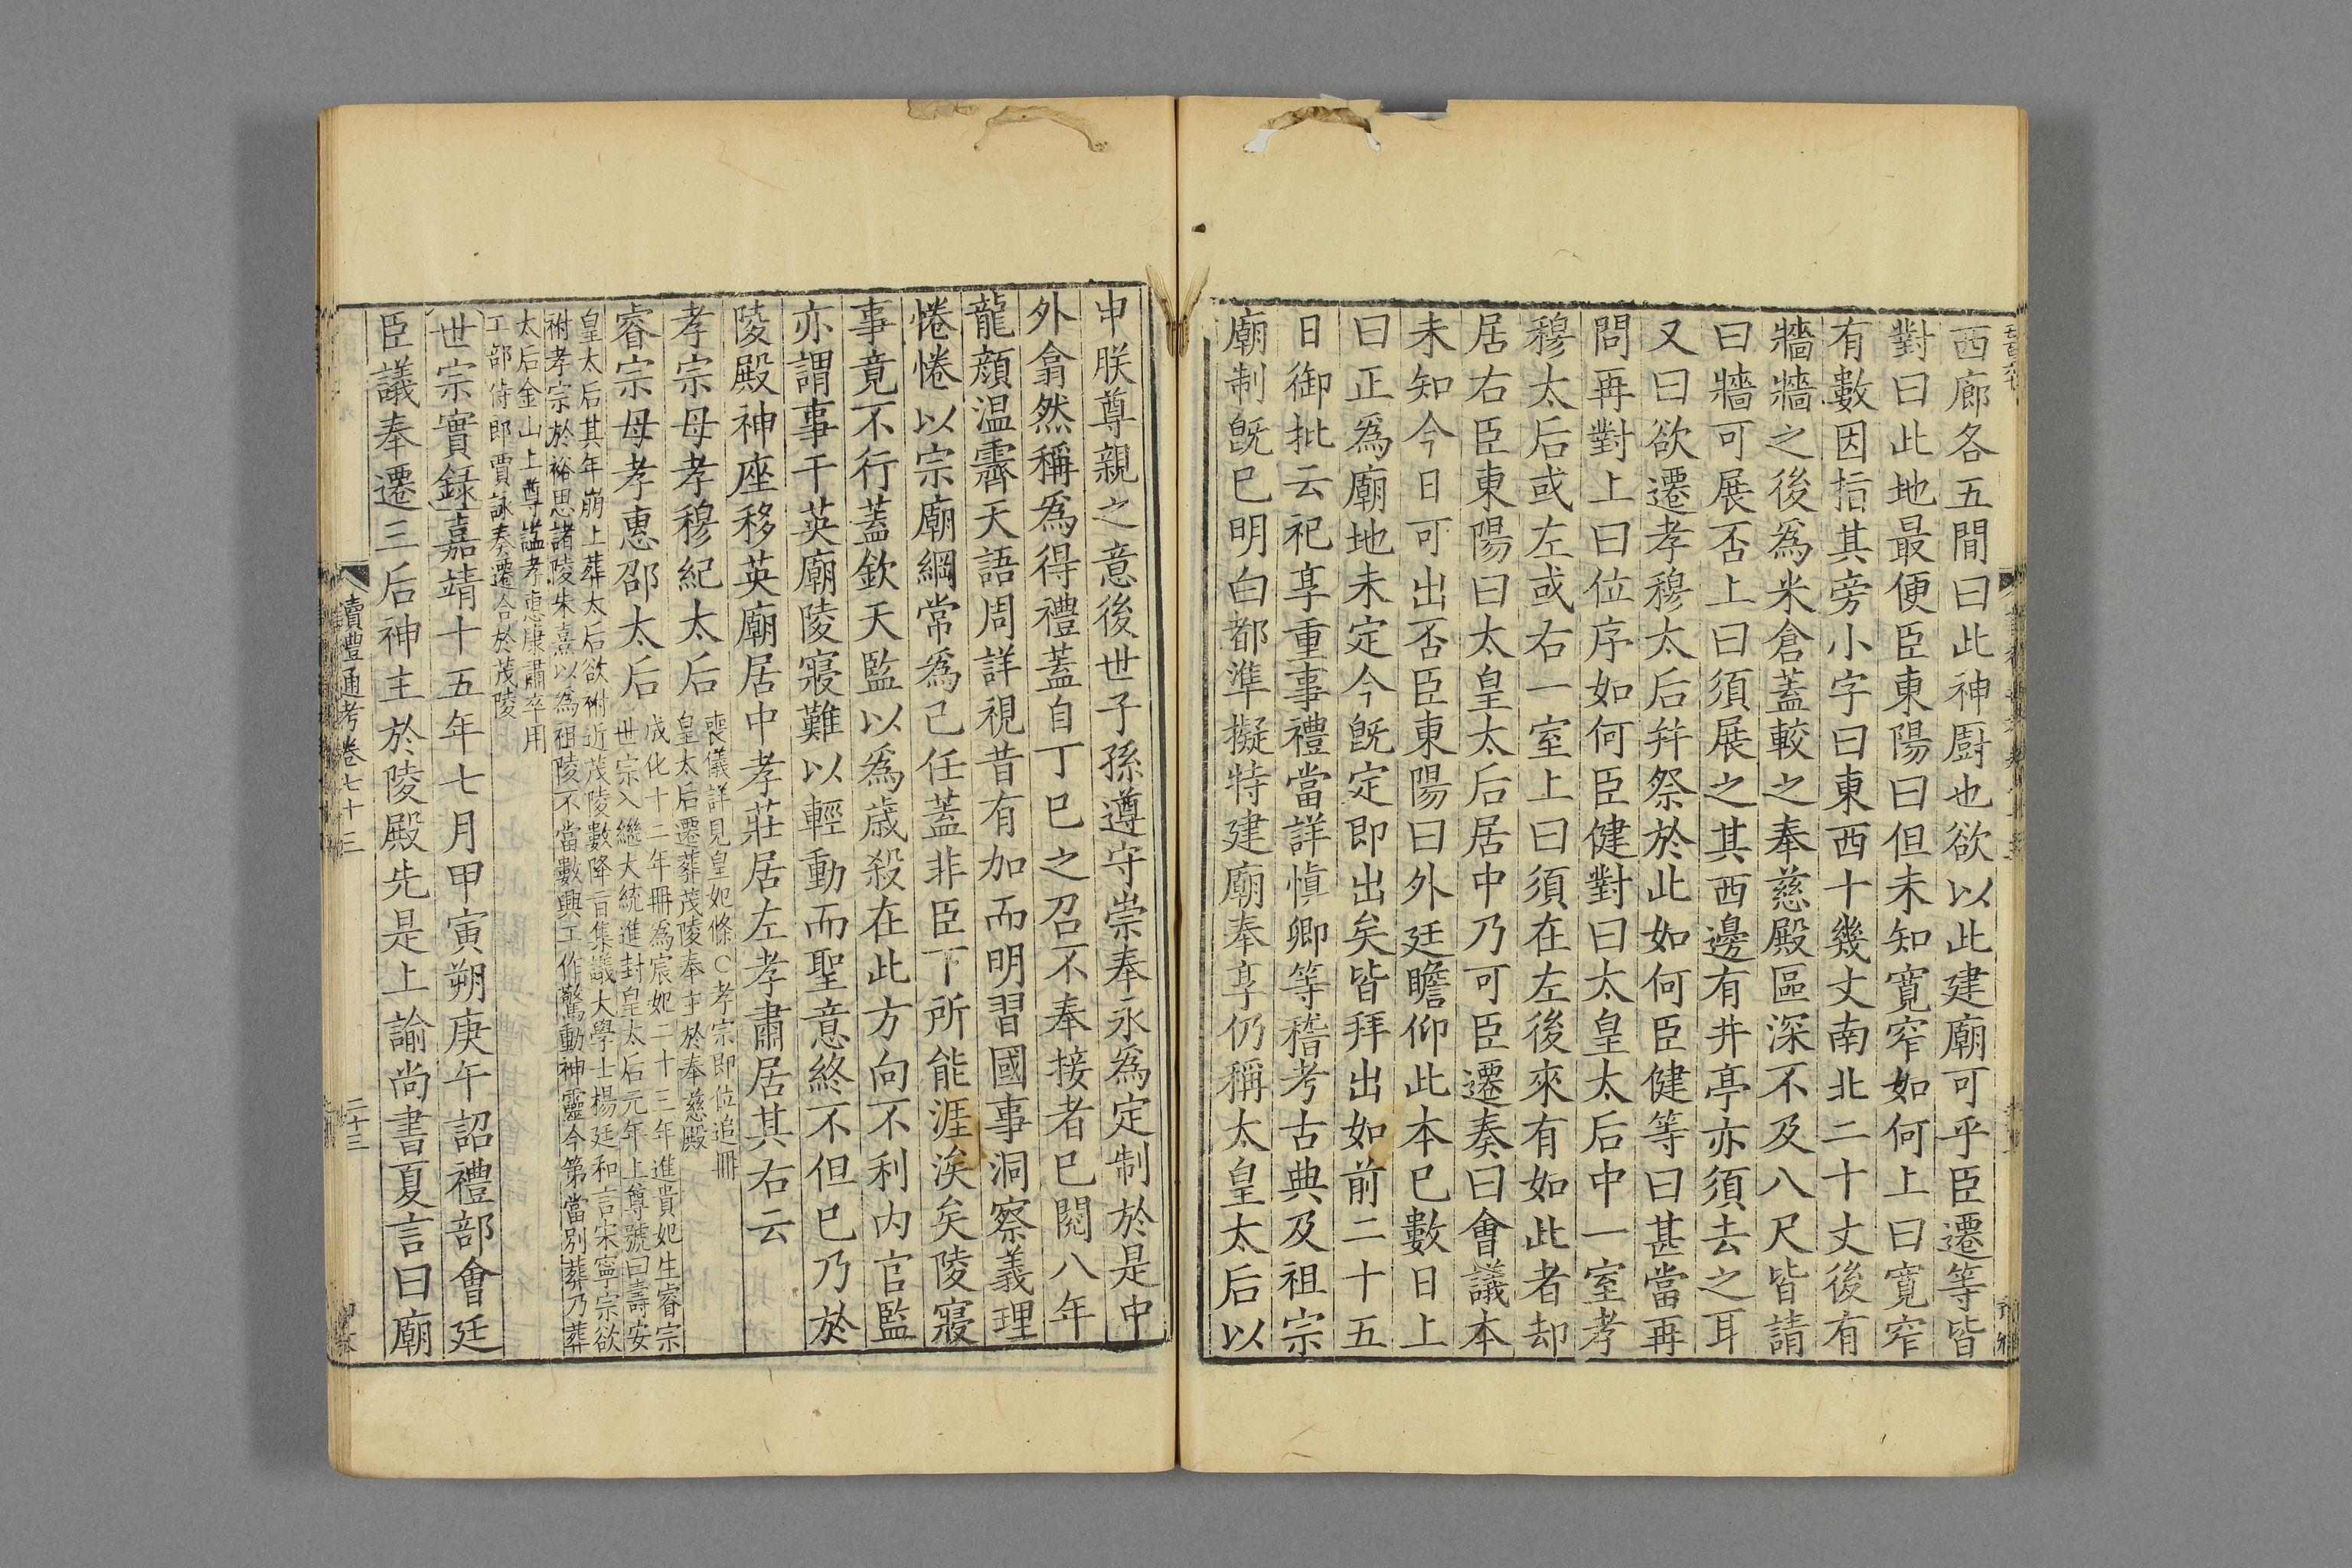 西廊各五間曰此神廚也欲以此建廟可乎臣遷等皆
對曰此地最便臣東陽曰但未知寬窄如何上曰寬窄
有數因指其旁小字曰東西十幾丈南北二十丈後有
牆牆之後爲米倉蓋較之奉慈殿區深不及八尺皆請
曰牆可展否上曰須展之其西邊有井亭亦須去之耳
又曰欲遷孝穆太后并祭於此如何臣健等曰甚當再
問再對上曰位序如何臣健對曰太皇太后中一室孝
穆太后或左或右一室上曰須在左後來有如此者却
居右臣東陽曰太皇太后居中乃可臣遷奏曰會議本
未知今日可出否臣東陽曰外廷瞻仰此本已數日上
曰正爲廟地未定今旣定即出矣皆拜出如前二十五
日御批云祀享重事禮當詳愼卿等稽考古典及祖宗
廟制旣已明白都準擬特建廟奉享仍稱太皇太后以
申朕尊親之意後世子孫遵守崇奉永爲定制於是中
外翕然稱爲得禮蓋自丁巳之召不奉接者已閱八年
龍顔温霽天語周詳視昔有加而明習國事洞察義理
惓惓以宗廟綱常爲己任蓋非臣下所能涯涘矣陵寢
事竟不行蓋欽天監以爲歲殺在此方向不利内官監
亦謂事干英廟陵寢難以輕動而聖意終不但已乃於
陵殿神座移英廟居中孝莊居左孝肅居其右云
孝宗母孝穆紀太后
喪儀詳見皇妃條○孝宗即位追冊
皇太后遷葬茂陵奉主於奉慈殿
睿宗母孝惠邵太后
成化十二年冊爲宸妃二十三年進貴妃生睿宗
世宗入繼大統進封皇太后元年上尊號曰壽安
皇太后其年崩上葬太后欲祔近茂陵數降㫖集議大學士楊廷和言宋寧宗欲
祔孝宗於裕思諸陵朱熹以爲祖陵不當數興工作驚動神靈今第當別葬乃葬
太后金山上尊諡孝惠康肅卒用
工部侍郎賈詠奏遷合於茂陵
世宗實錄嘉靖十五年七月甲寅朔庚午詔禮部會廷
臣議奉遷三后神主於陵殿先是上諭尚書夏言曰廟
讀禮通考卷七十三
二十三